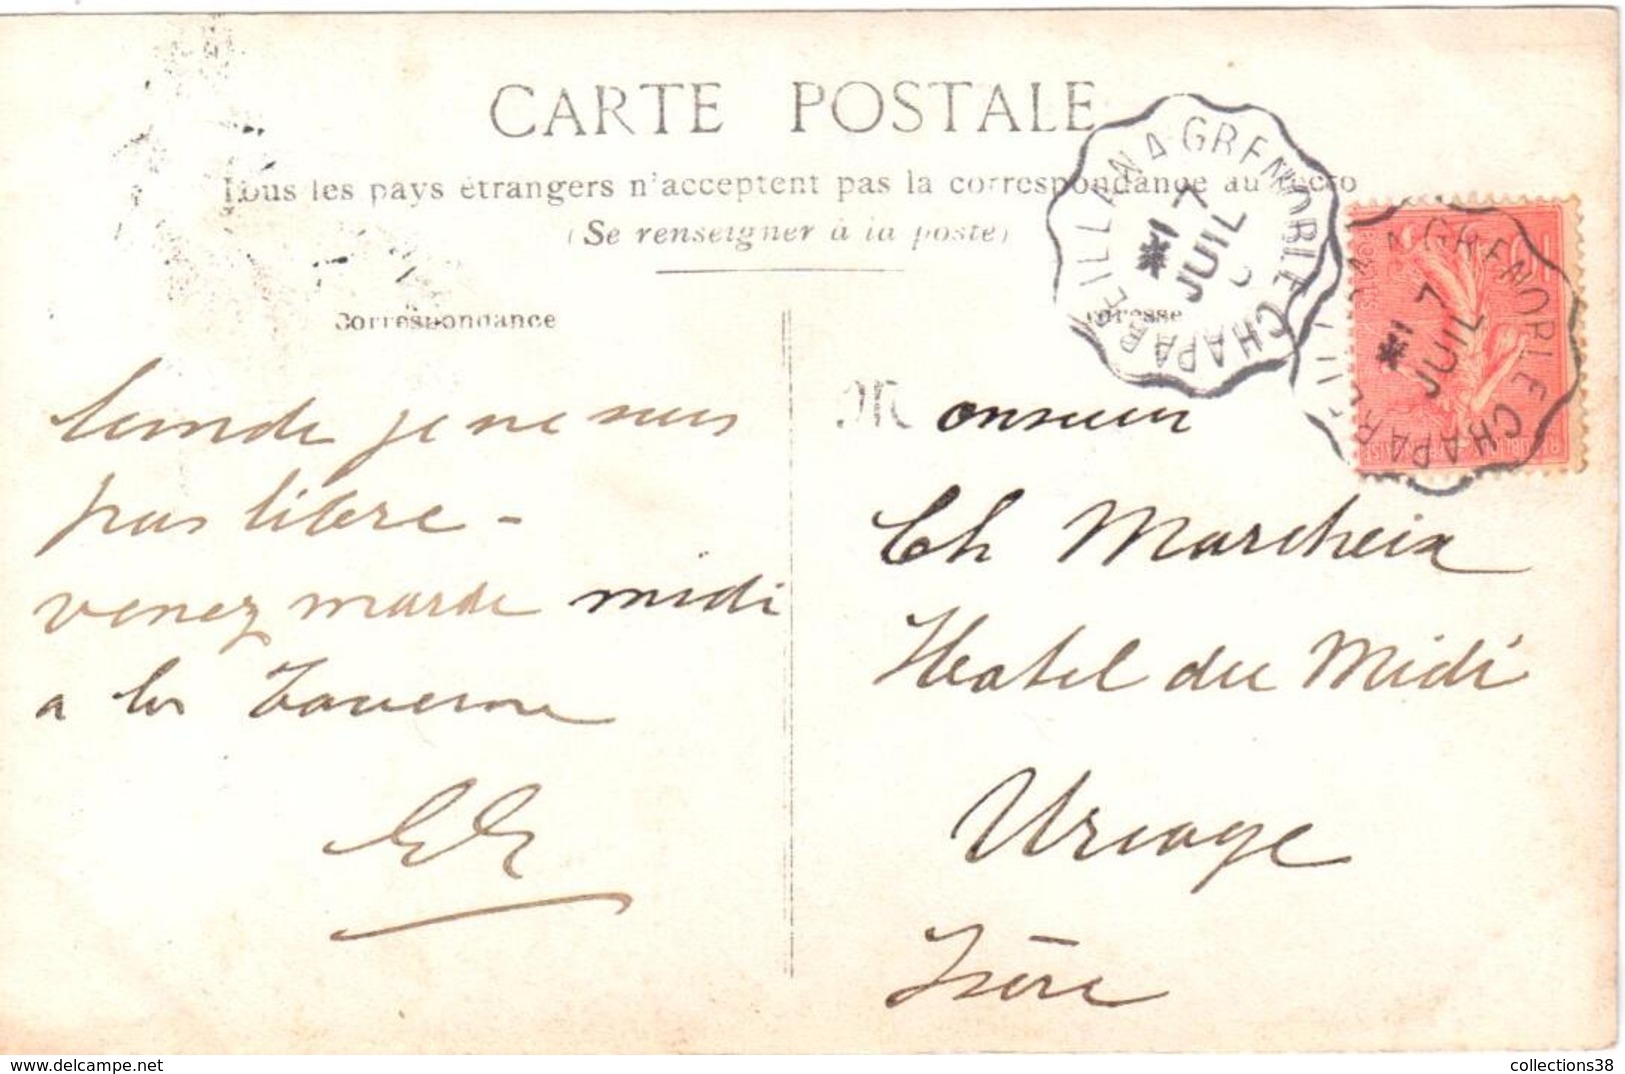 CARTE POSTALE
Tous les pays étrangers n'acceptent pas la correspondance au recto
(Se renseigner à la poste)
Correspondance
Adresse
CHAPAREILLAN A GRENOBLE
7
*1
JUIL
CHAPAREILLAN A GRENOBLE
7
*1
JUIL
je ne suis
pas libre -
venez marde midi
a la Taverne
Monsieur
Ch Marcheix
Hotel du Midi
Uriage
Isère
collections38